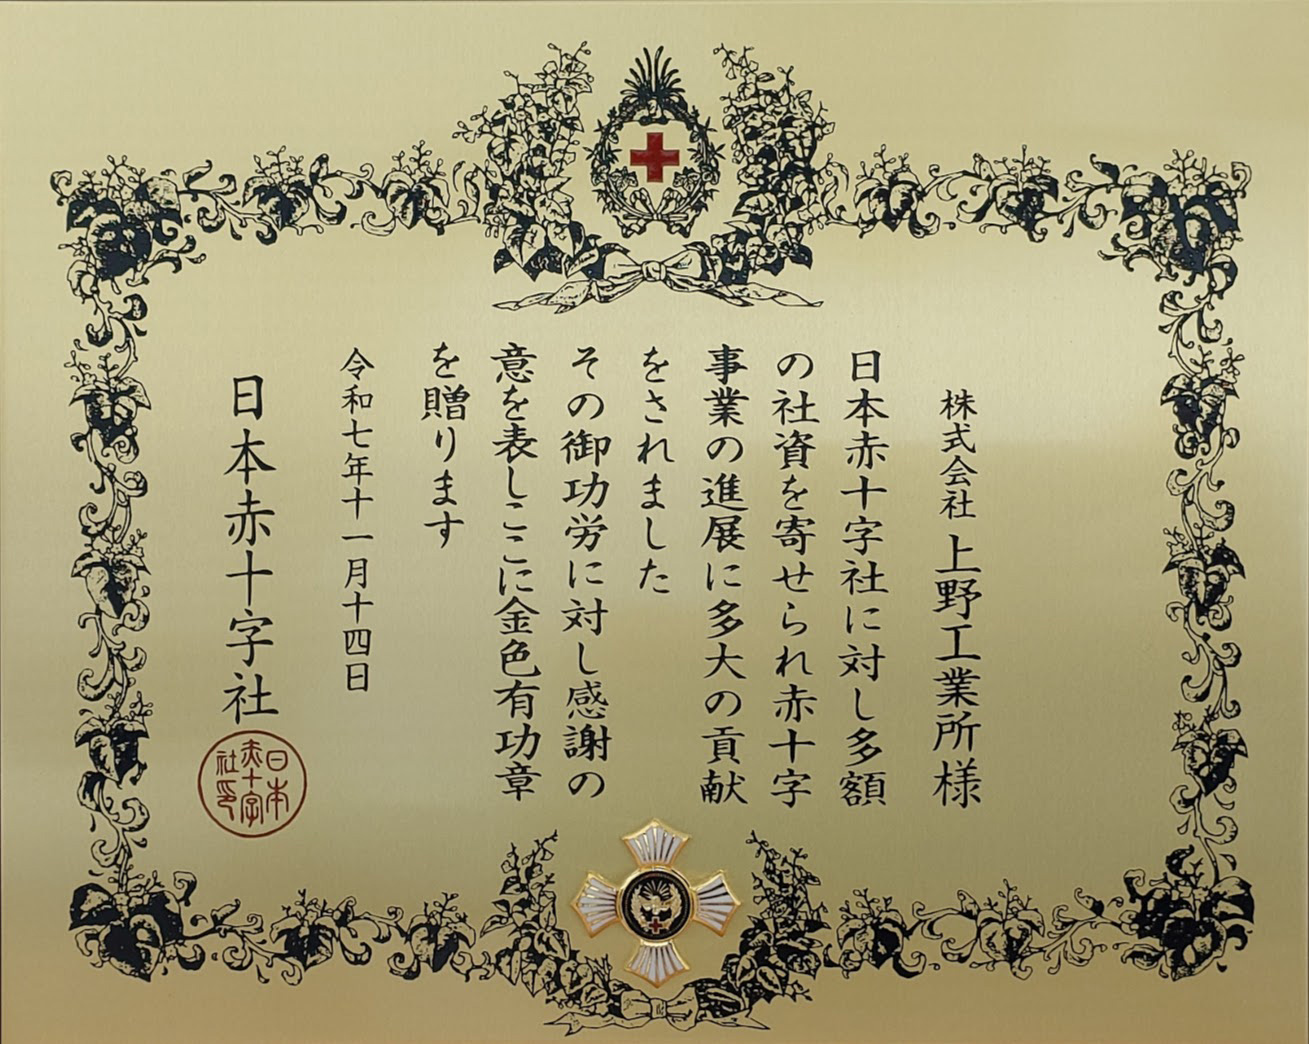 株式会社 上野工業所 様
日本赤十字社に対し多額
の社資を寄せられ赤十字
事業の進展に多大の貢献
をされました
その御功労に対し感謝の
意を表しここに金色有功章
を贈ります
令和七年十一月十四日
日本赤十字社
日本
赤十字
社印